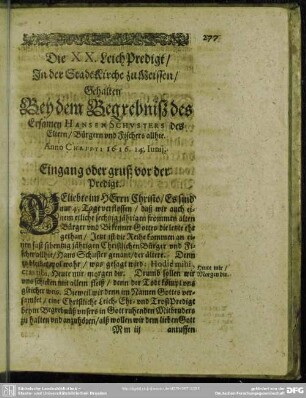 277
Die XX. Leich Predigt/
In der Stadt Kirche zu Meissen/
Gehalten
Bey dem Begrebniß des
Ersamen HANSEN SCHVSTERS des
Eltern/ Bürgern und Fischers allhie.
Anno CHRISTI 1616. 14. Iunij.
Eingang oder gruß vor der
Predigt.
GEliebte im HErrn Christo/ Es sind
nur 4. Tage verflossen/ daß wir auch ei-
nem etliche sechzig jährigen frommen alten
Bürger und
gethan/ Jetzt ist die Reihe kommen an ei-
nen fast jährigen Christlichen Bürger und Fi-
schern allhie/ Hans Schuster genant/ der ältere. Denn
es bleibet wol wahr/ was gesagt wird: hodie mihi,
cras tibi, Heute mir/ morgen dir. Drumb sollen wir
uns schicken mit allem fleiß/ denn der Todt kömpt uns
gleicher weis. Dieweil wir denn im Namen Gottes ver-
samlet/ eine Christliche Leich, Ehr- und Trostpredigt
beym Begrebniß unsers in Gott ruhenden Mitbruders
zu halten und anzuhören/ als wollen wir den lieben Gott
Heut mir/
Morgen dir.
M m iij
anruffen